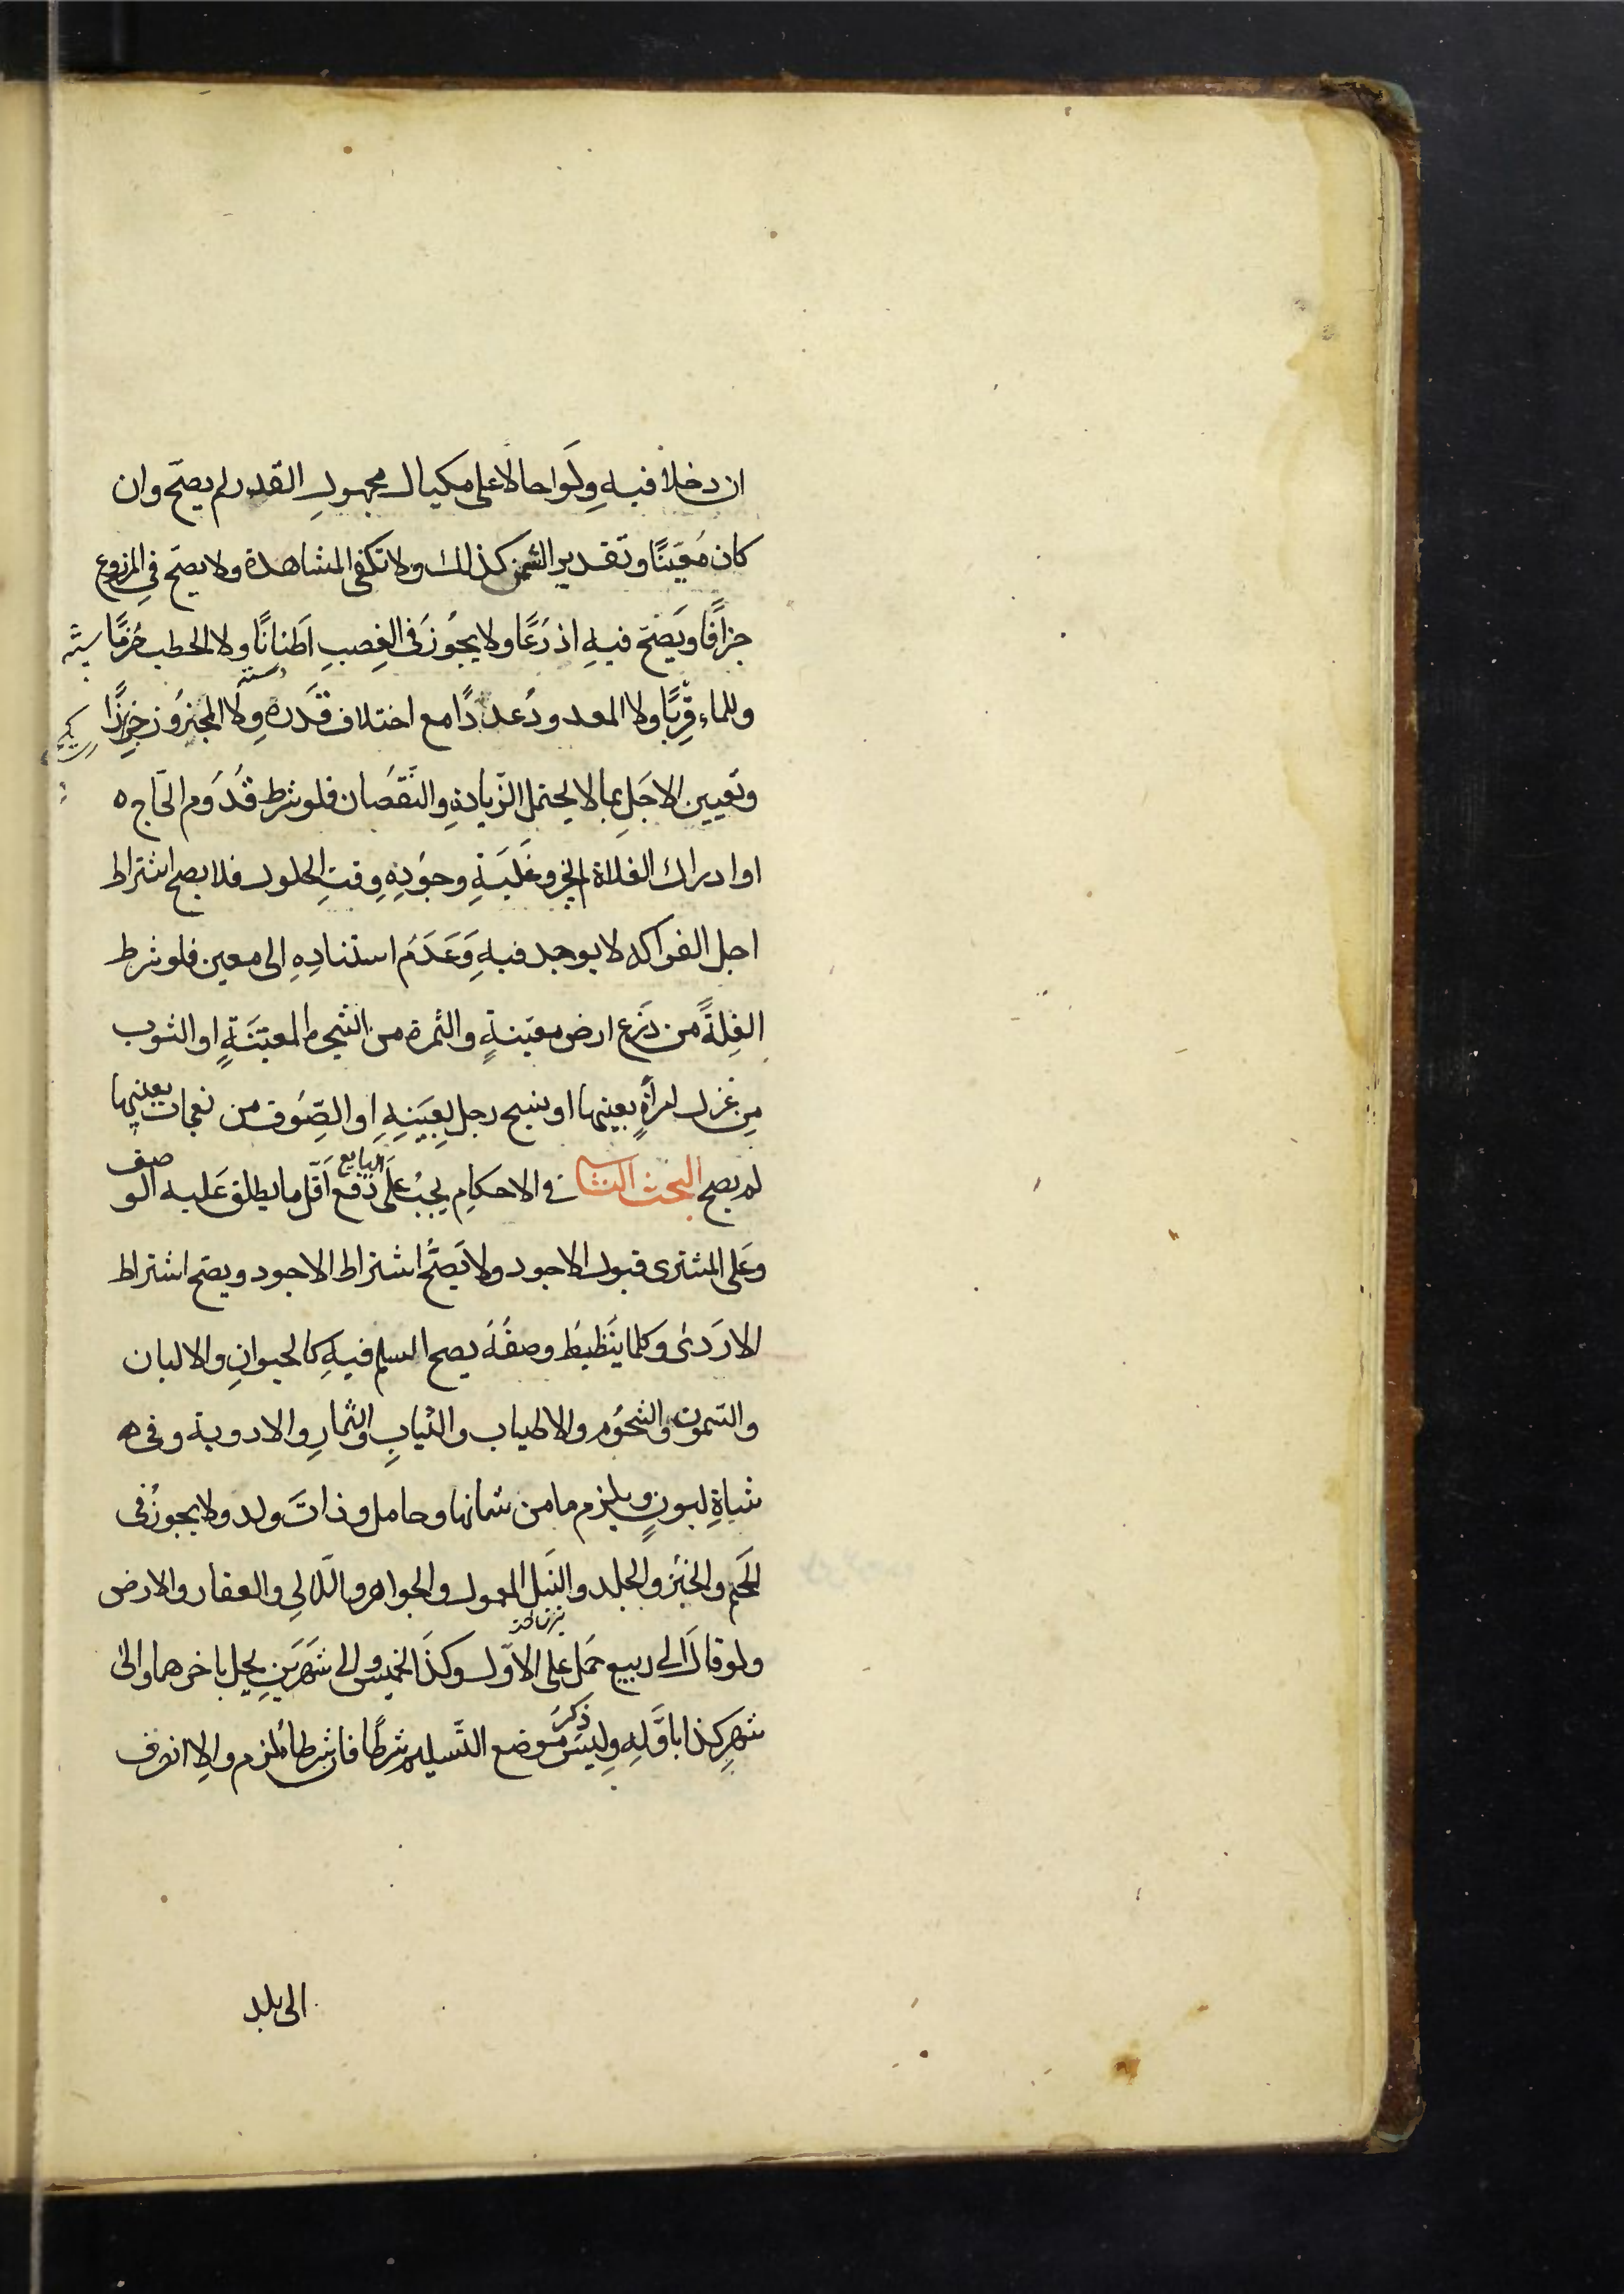 ان دخلا فيهِ وِلَو احالا على مكيال مجهولِ القدر لم يصحّ وان
كان مُعَيّنًا وتَقدير الثمن كذلك ولا تكفى المشاهدة ولا يصحّ فى المزروع
جزافًا ويَصحّ فيهِ اذرُعًا ولا يجُوز فى القصبِ اَطنانًا ولا الحطب حُزمًا
وللماء قِربًا ولا المعدودُ عددًا مع اختلاف قَدَرِهِ ولا المجزوز جزًا
وتَعيين الاجَلِ بما لا يحتمل الزّيادةِ والنّقصُان فلو شرط قُدُوَم الحّاج ه
او ادراك الغلاة لم يجز وغَلَبَةِ وجوُدِهِ وقتِ الحلول فلا يصح اشتراط
اجل الفواكه لا يوجد فيهِ وَعَدَمَ استنادِهِ الى معين فلو شرط
الغِلةً من زَرع ارض معيّنةٍ والثمرة من الشجرة المعيّنَةٍ او الثوب
مِن غزل امرأةٍ بعينها او نسج رجل بعَينِهِ او الصّوف من نعجات بعينها
لم يصح البحث الثانى فى الاحكامِ يجبُ علىَ البايع دَفع اَقلّ ما يطلق عَليه الوصف
وعَلى المشترى قبول الاجود ولا يَصحُّ اشتراط الاجود ويصحّ اشتراط
الاردَى وكلما ينَظبِط وصفُهُ يصح السلم فيهِ كالحيوانِ والالبان
والسّمون والشحُوم والاطياب والثيابِ والثمارِ والادوية وفى ه
شاةِ لبونٍ ويلزم ما من شانها وحامل وذاتَ ولد ولا يجوزُ فى
اللحَم والخبُز والجلد والنَبل المعمول والجواهر واللّالى والعقار والارض
ولو قالَ الى ربيع حَمل على الاوّل وكذَا الخميس والى شهرَينِ يحل باخرهما والى
شهرِ كذا باوَّلهِ وِليسَ ذِكرُ مَوضع التّسليم شرطًا فان شرطاه لزم والا انصرف
الى بلد